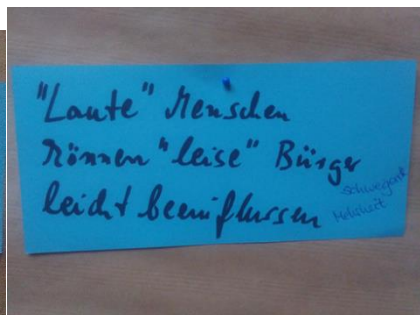 "Laute" Menschen
können "leise" Bürger
leicht beeinflussen
schweigende
Mehrheit